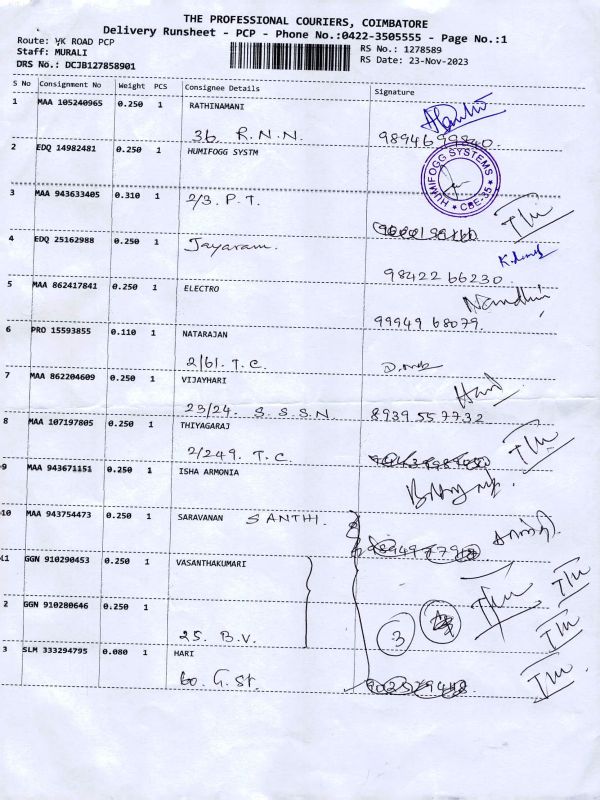 THE PROFESSIONAL COURIERS, COIMBATORE
Delivery Runsheet - PCP - Phone No.:0422-3505555 - Page No.:1
Route: VK ROAD PCP
RS No.: 1278589
Staff: MURALI
RS Date: 23-Nov-2023
DRS No.: DCJB127858901
S No Consignment No Weight PCS Consignee Details Signature
1 MAA 105240965 0.250 1 RATHINAMANI
36. R.N.N. 9894699840
2 EDQ 14982481 0.250 1 HUMIFOGG SYSTM
HUMIFOGG SYSTEMS
CBE-35
3 MAA 943633405 0.310 1 2/3. P.T.
4 EDQ 25162988 0.250 1 Jayaram.
98422 66230
5 MAA 862417841 0.250 1 ELECTRO Nandhini
99949 68079
6 PRO 15593855 0.110 1 NATARAJAN
2/61. T.C.
7 MAA 862204609 0.250 1 VIJAYHARI Hari
23/24. S.S.S.N. 8939557732
8 MAA 107197805 0.250 1 THIYAGARAJ
2/249. T.C.
9 MAA 943671151 0.250 1 ISHA ARMONIA
10 MAA 943754473 0.250 1 SARAVANAN SANTHI.
11 GGN 910290453 0.250 1 VASANTHAKUMARI
2 GGN 910280646 0.250 1
25. B.V. 3
3 SLM 333294795 0.080 1 HARI
60. G. St.